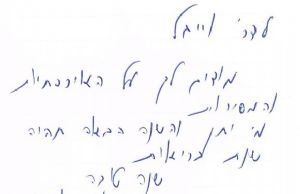 לדר' וייגל
מודים לך על האירוחיות
והמסירות
מי יתן והשנה הבאה תהיה
שנת בריאות
שנה טובה